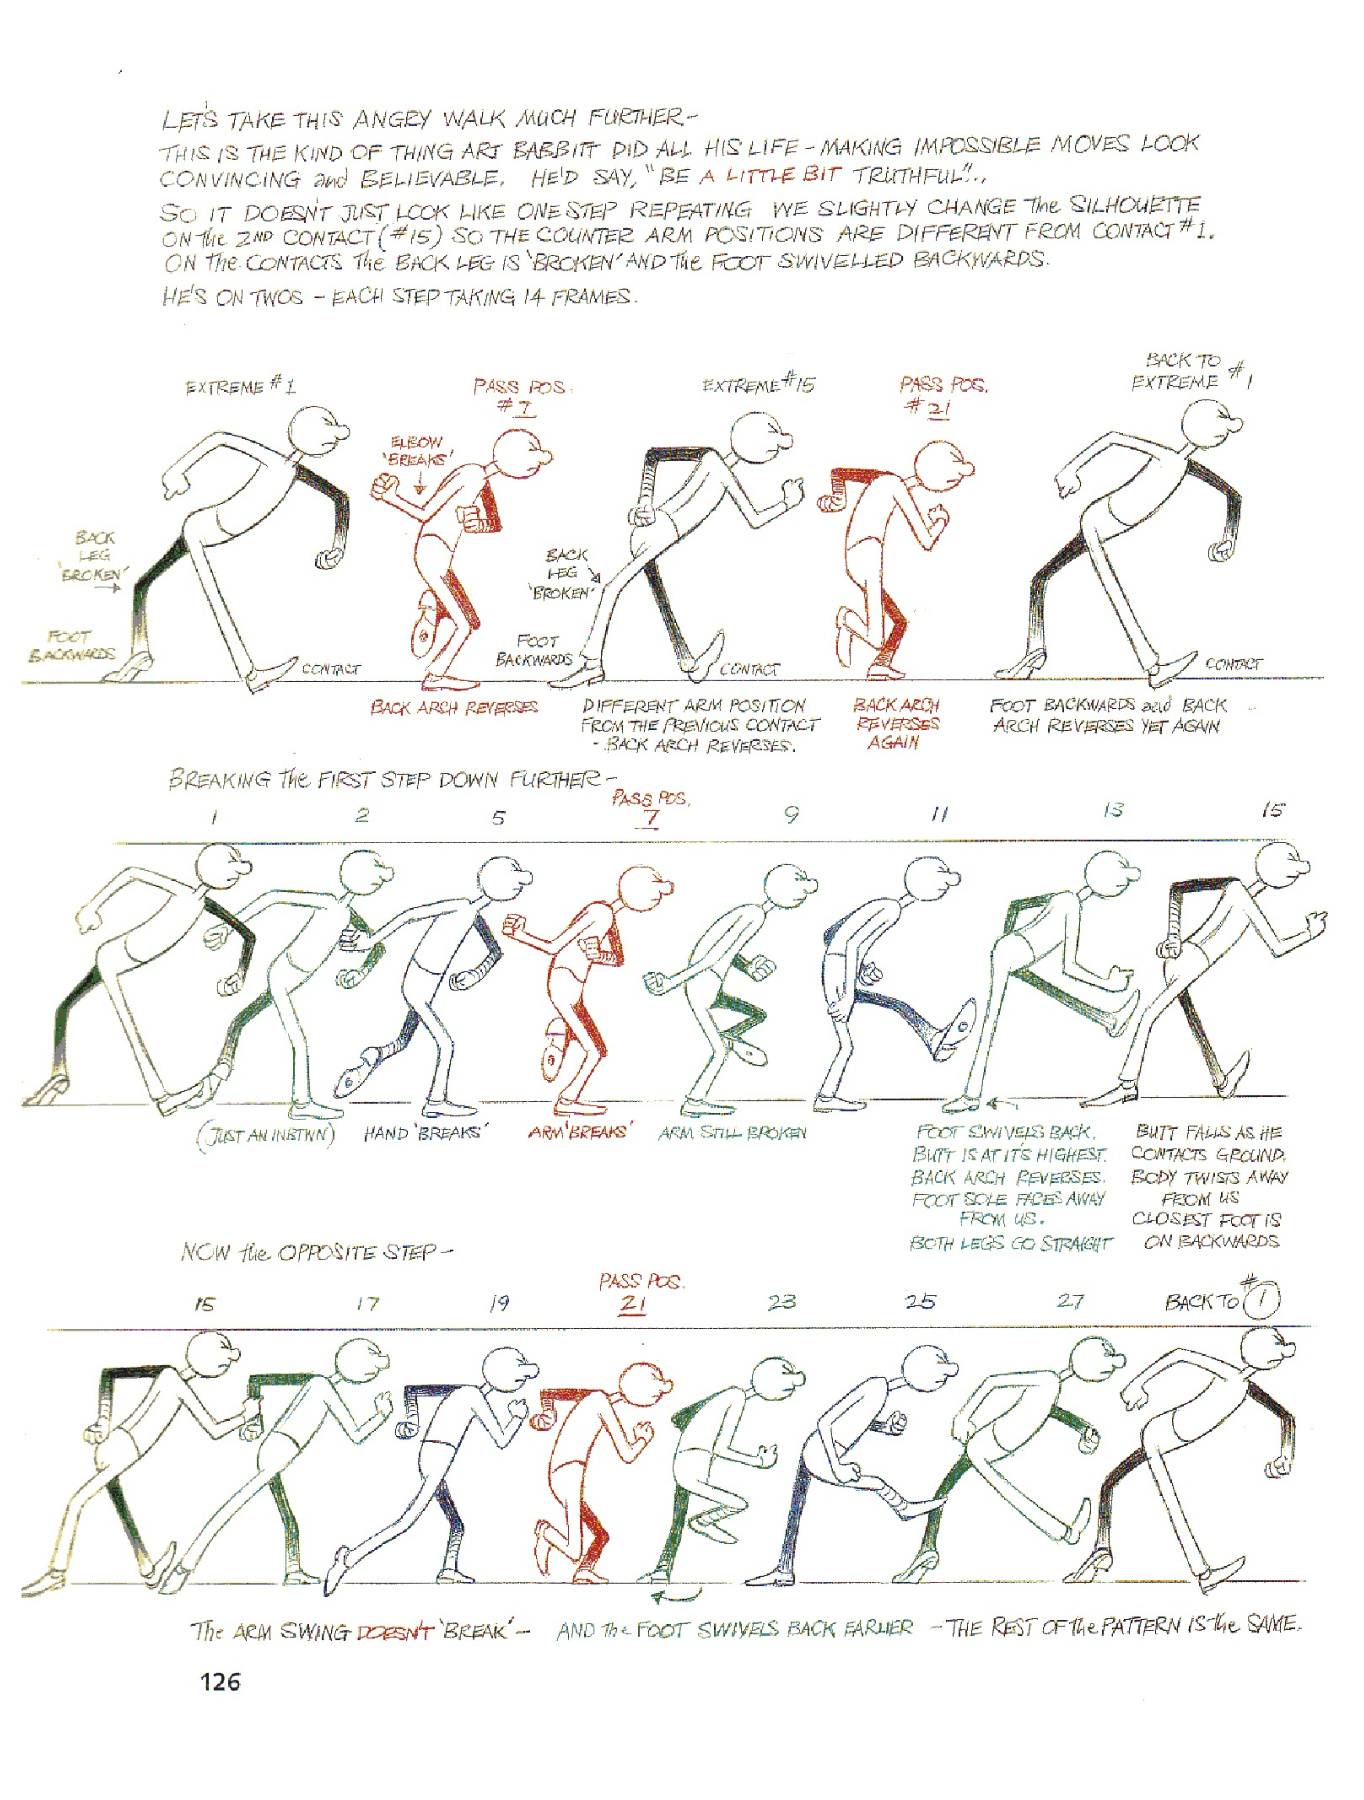 LET'S TAKE THIS ANGRY WALK MUCH FURTHER –
THIS IS THE KIND OF THING ART BABBITT DID ALL HIS LIFE – MAKING IMPOSSIBLE MOVES LOOK
CONVINCING and BELIEVABLE. HE'D SAY, "BE A LITTLE BIT TRUTHFUL"..,
SO IT DOESN'T JUST LOOK LIKE ONE STEP REPEATING WE SLIGHTLY CHANGE The SILHOUETTE
ON The 2ND CONTACT (#15) SO THE COUNTER ARM POSITIONS ARE DIFFERENT FROM CONTACT #1.
ON The CONTACTS The BACK LEG IS 'BROKEN' AND The FOOT SWIVELLED BACKWARDS.
HE'S ON TWOS – EACH STEP TAKING 14 FRAMES.
EXTREME #1
PASS POS.
#7
EXTREME #15
PASS POS.
#21
BACK TO
EXTREME #1
ELBOW
'BREAKS'
BACK
LEG
'BROKEN'
FOOT
BACKWARDS
CONTACT
BACK
LEG
'BROKEN'
FOOT
BACKWARDS
CONTACT
CONTACT
BACK ARCH REVERSES
DIFFERENT ARM POSITION
FROM THE PREVIOUS CONTACT
– BACK ARCH REVERSES.
BACK ARCH
REVERSES
AGAIN
FOOT BACKWARDS and BACK
ARCH REVERSES YET AGAIN
BREAKING The FIRST STEP DOWN FURTHER –
PASS POS.
1 2 5 7 9 11 13 15
(JUST AN INBTWN)
HAND 'BREAKS'
ARM 'BREAKS'
ARM STILL BROKEN
FOOT SWIVELS BACK.
BUTT IS AT IT'S HIGHEST.
BACK ARCH REVERSES.
FOOT SOLE FACES AWAY
FROM US.
BOTH LEGS GO STRAIGHT
BUTT FALLS AS HE
CONTACTS GROUND.
BODY TWISTS AWAY
FROM US
CLOSEST FOOT IS
ON BACKWARDS
NOW the OPPOSITE STEP –
PASS POS.
15 17 19 21 23 25 27 BACK TO #1
The ARM SWING DOESN'T 'BREAK' – AND The FOOT SWIVELS BACK EARLIER – THE REST OF The PATTERN IS the SAME.
126